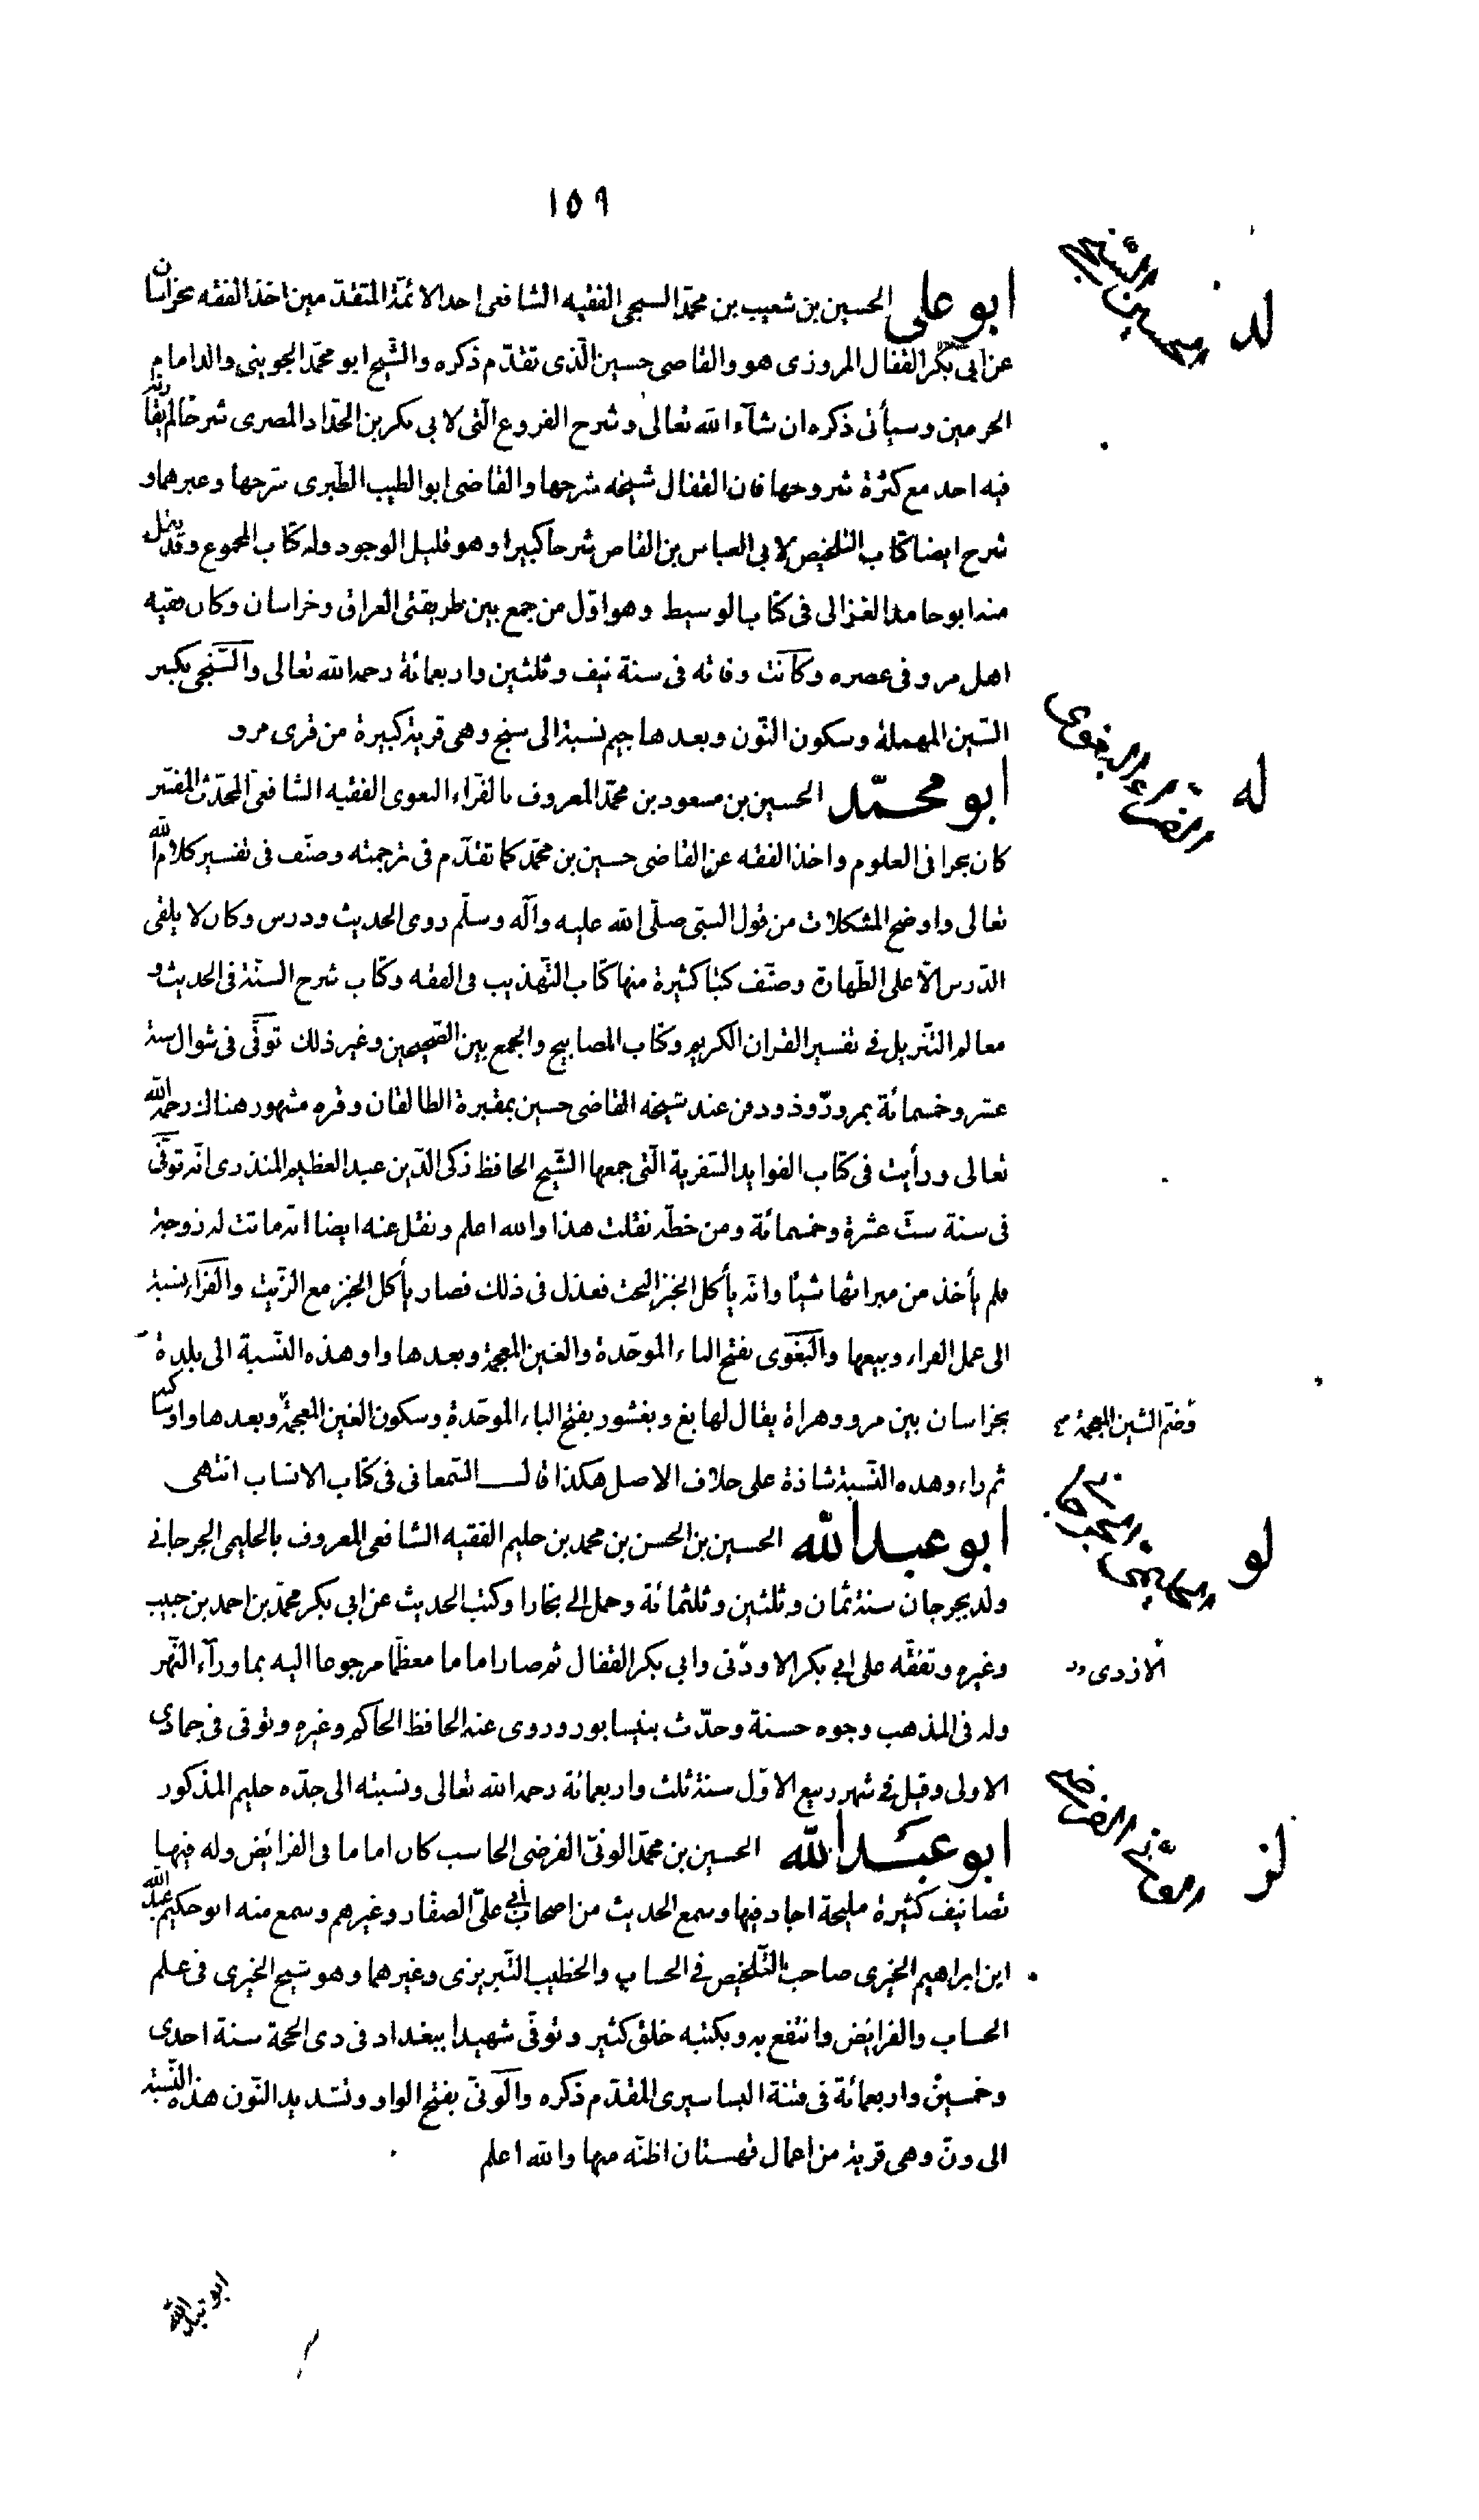 ١٥٩
ابو على الحسين بن شعيب بن محمّد السنجى الفقيه الشافعى احد الائمّة المتقدّمين اخذ الفقه بخراسان
عن ابى بكر القفال المروزى هو والقاضى حسين الّذى تقدّم ذكره والشّيخ ابو محمّد الجوينى والد امام
الحرمين وسيأتى ذكره ان شآء الله تعالى وشرح الفروع الّتى لابى بكر بن الحدّاد المصرى شرحًا لم يقاربه
فيه احد مع كثرة شروحها فان القفال شيخه شرحها والقاضى ابو الطيب الطّبرى شرحها وغيرهما و
شرح ايضا كتاب التلخيص لابى العباس بن القاص شرحا كبيرا وهو قليل الوجود وله كتاب المجموع وقد نقل
منه ابو حامد الغزالى فى كتاب الوسيط وهو اوّل من جمع بين طريقتى العراق وخراسان وكان فقيه
اهل مرو فى عصره وكانت وفاته فى سنة نيف وثلثين واربعمائة رحمه الله تعالى والسّنجى بكسر
السّين المهملة وسكون النّون وبعدها جيم نسبة الى سنج وهى قرية كبيرة من قرى مرو
ابو محمّد الحسين بن مسعود بن محمّد المعروف بالفرّاء البغوى الفقيه الشافعىّ المحدّث المفسّر
كان بحرا فى العلوم واخذ الفقه عن القاضى حسين بن محمّد كما تقدّم فى ترجمته وصنّف فى تفسير كلام الله
تعالى واوضح المشكلات من قول النبىّ صلّى الله عليه وآله وسلّم روى الحديث ودرس وكان لا يلقى
الدّرس الّا على الطّهارة وصنّف كتبا كثيرة منها كتاب التّهذيب فى الفقه وكتاب شرح السنّة فى الحديث و
معالم التّنزيل فى تفسير القران الكريم وكتاب المصابيح والجمع بين الصّحيحين وغير ذلك توفّى فى شوال سنة
عشر وخمسمائة بمرورّوذ ودفن عند شيخه القاضى حسين بمقبرة الطالقان وقبره مشهور هنالك رحمه الله
تعالى ورأيت فى كتاب الفوايد السّفرية الّتى جمعها الشّيخ الحافظ زكى الدّين عبد العظيم المنذرى انّه توفّى
فى سنة ستّ عشرة وخمسمائة ومن خطّه نقلت هذا والله اعلم ونقل عنه ايضا انّه ماتت له زوجة
فلم يأخذ من ميراثها شيئًا وانّه يأكل الخبز البحت فعذل فى ذلك فصار يأكل الخبز مع الزّيت والفرّاء نسبة
الى عمل الفراء وبيعها والبَغَوى بفتح الباء الموحّدة والغين المعجمة وبعدها واو هذه النّسبة الى بلدة
بخراسان بين مرو وهراة يقال لها بغ وبغشور بفتح الباء الموحّدة وسكون الغين المعجمة وبعدها واو ساكنه
ثم راء وهذه النّسبة شاذة على خلاف الاصل هكذا قال السّمعانى فى كتاب الانساب انتهى
ابو عبد الله الحسين بن الحسن بن محمد بن حليم الفقيه الشافعى المعروف بالحليمى الجرجانى
ولد بجرجان سنة ثمان وثلثين وثلثمائة وحمل الى بخارا وكتب الحديث عن ابى بكر محمّد بن احمد بن حبيب
وغيره وتفقّه على ابى بكر الاودنى وابى بكر القفال ثم صار اماما معظّما مرجوعا اليه بما ورآء النّهر
وله فى المذهب وجوه حسنة وحدّث بنيسابور وروى عنه الحافظ الحاكم وغيره وتوفى فى جمادى
الاولى وقيل فى شهر ربيع الاوّل سنة ثلث واربعمائة رحمه الله تعالى ونسبته الى جدّه حليم المذكور
ابو عبد الله الحسين بن محمّد الونّى الفرضى الحاسب كان اماما فى الفرائض وله فيها
تصانيف كثيرة مليحة اجاد فيها وسمع الحديث من اصحاب ابى علىّ الصفّار وغيرهم وسمع منه ابو حكيم عبد الله
ابن ابراهيم الخبرى صاحب التّلخيص فى الحساب والخطيب التّبريزى وغيرهما وهو شيخ الخبرى فى علم
الحساب والفرائض وانتفع به وبكتبه خلق كثير وتوفّى شهيدا ببغداد فى ذى الحجة سنة احدى
وخمسين واربعمائة فى فتنة البساسيرى المقدّم ذكره والَونّى بفتح الواو وتشديد النّون هذه النّسبة
الى ونّ وهى قرية من اعمال قهستان اظنّه منها والله اعلم
لد
له
الفراء البغوى
وضمّ الشين المعجمة
لو
الازدى
لز
ابو عبد الله